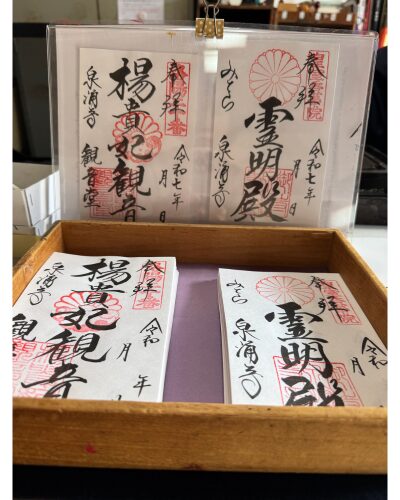 奉拝
楊貴妃観音
令和七年 月 日
泉涌寺 観音堂
奉拝
霊明殿
令和七年 月 日
みてら 泉涌寺
奉拝
楊貴妃観音
令和 年 月
泉涌寺 観
奉拝
霊明殿
令和 年 月
みてら 泉涌寺